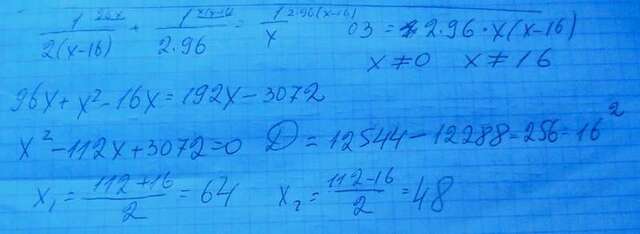 1^{96x}/2(x-16) + 1^{x(x-16)}/2·96 = 1^{2·96(x-16)}/x ОЗ = 2·96·x(x-16)
x≠0 x≠16
96x+x²-16x=192x-3072
x²-112x+3072=0 D=12544-12288=256=16²
x₁=112+16/2=64 x₂=112-16/2=48